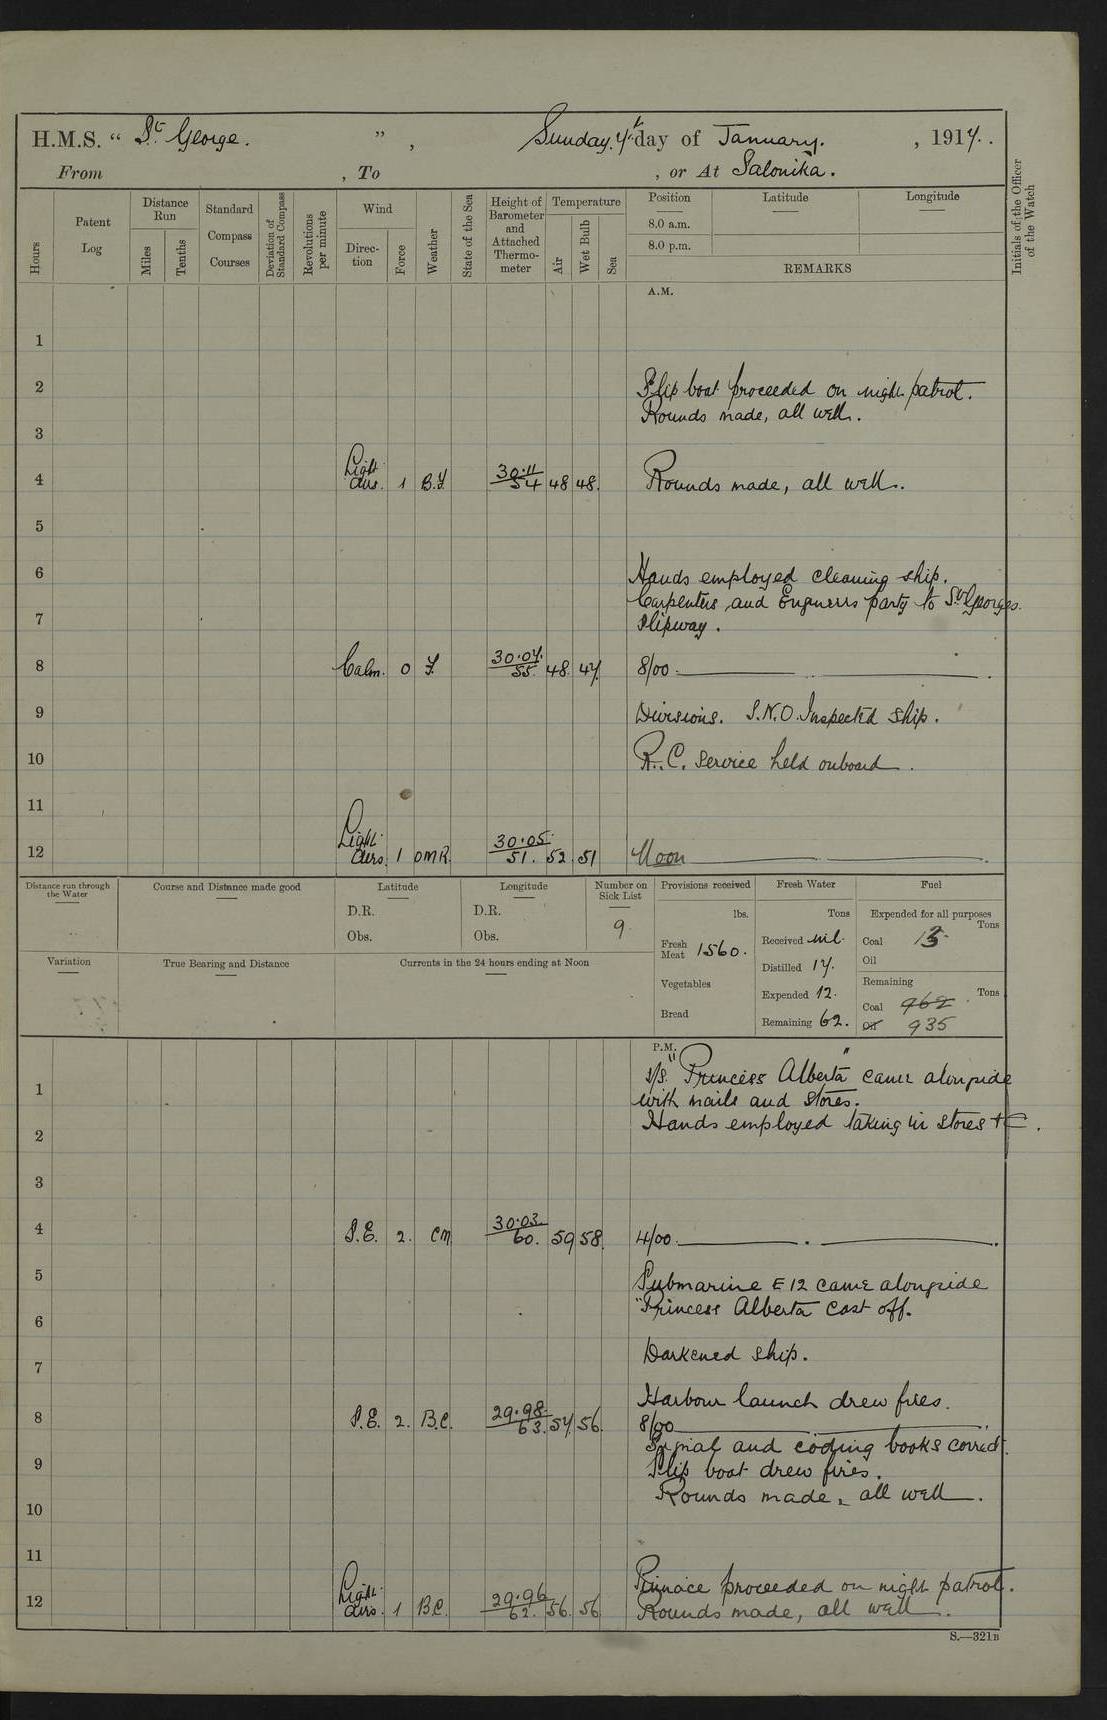 H.M.S. " St. George. ", Sunday, 7th day of January. , 1917.
From , To , or At Salonika.
Hours
Patent Log
Distance Run
Miles
Tenths
Standard Compass Courses
Deviation of Standard Compass
Revolutions per minute
Wind
Direction
Force
Weather
State of the Sea
Height of Barometer and Attached Thermometer
Temperature
Air
Wet Bulb
Sea
Position
Latitude
Longitude
8.0 a.m.
8.0 p.m.
REMARKS
Initials of the Officer of the Watch
A.M.
1
2 Slip boat proceeded on night patrol.
Rounds made, all well.
3
4 Light airs. 1 B.F. 30.11 54 48 48. Rounds made, all well.
5
6 Hands employed cleaning ship.
Carpenters and Engineers party to St. Georges
7 Slipway.
8 Calm. 0 F. 30.07. 55. 48. 47. 8/00
9 Divisions. S.N.O. Inspected ship.
10 R.C. Service held onboard.
11
12 Light airs. 1 OMR. 30.05. 51. 52. 51 Noon
Distance run through the Water
Course and Distance made good
Latitude
D.R.
Obs.
Longitude
D.R.
Obs.
Number on Sick List
9
Provisions received
lbs.
Fresh Meat 1560.
Vegetables
Bread
Fresh Water
Tons
Received nil.
Distilled 17.
Expended 12.
Remaining 62.
Fuel
Expended for all purposes
Tons
Coal
Oil
Remaining
Tons
Coal 962
Oil 935
Variation
True Bearing and Distance
Currents in the 24 hours ending at Noon
P.M.
1 s/s. "Princess Alberta" came alongside
with mails and stores.
2 Hands employed taking in stores +C.
3
4 S.E. 2. CM 30.03. 60. 59 58. 4/00.
5 Submarine E12 came alongside
6 "Princess Alberta cast off.
7 Darkened ship.
Harbour launch drew fires.
8 S.E. 2. B.C. 29.98. 63. 57. 56. 8/00
Signal and coding books correct.
9 Slip boat drew fires.
10 Rounds made, all well.
11
Pinnace proceeded on night patrol.
12 Light airs. 1 B.C. 29.96 62. 56. 56 Rounds made, all well.
S.—321B